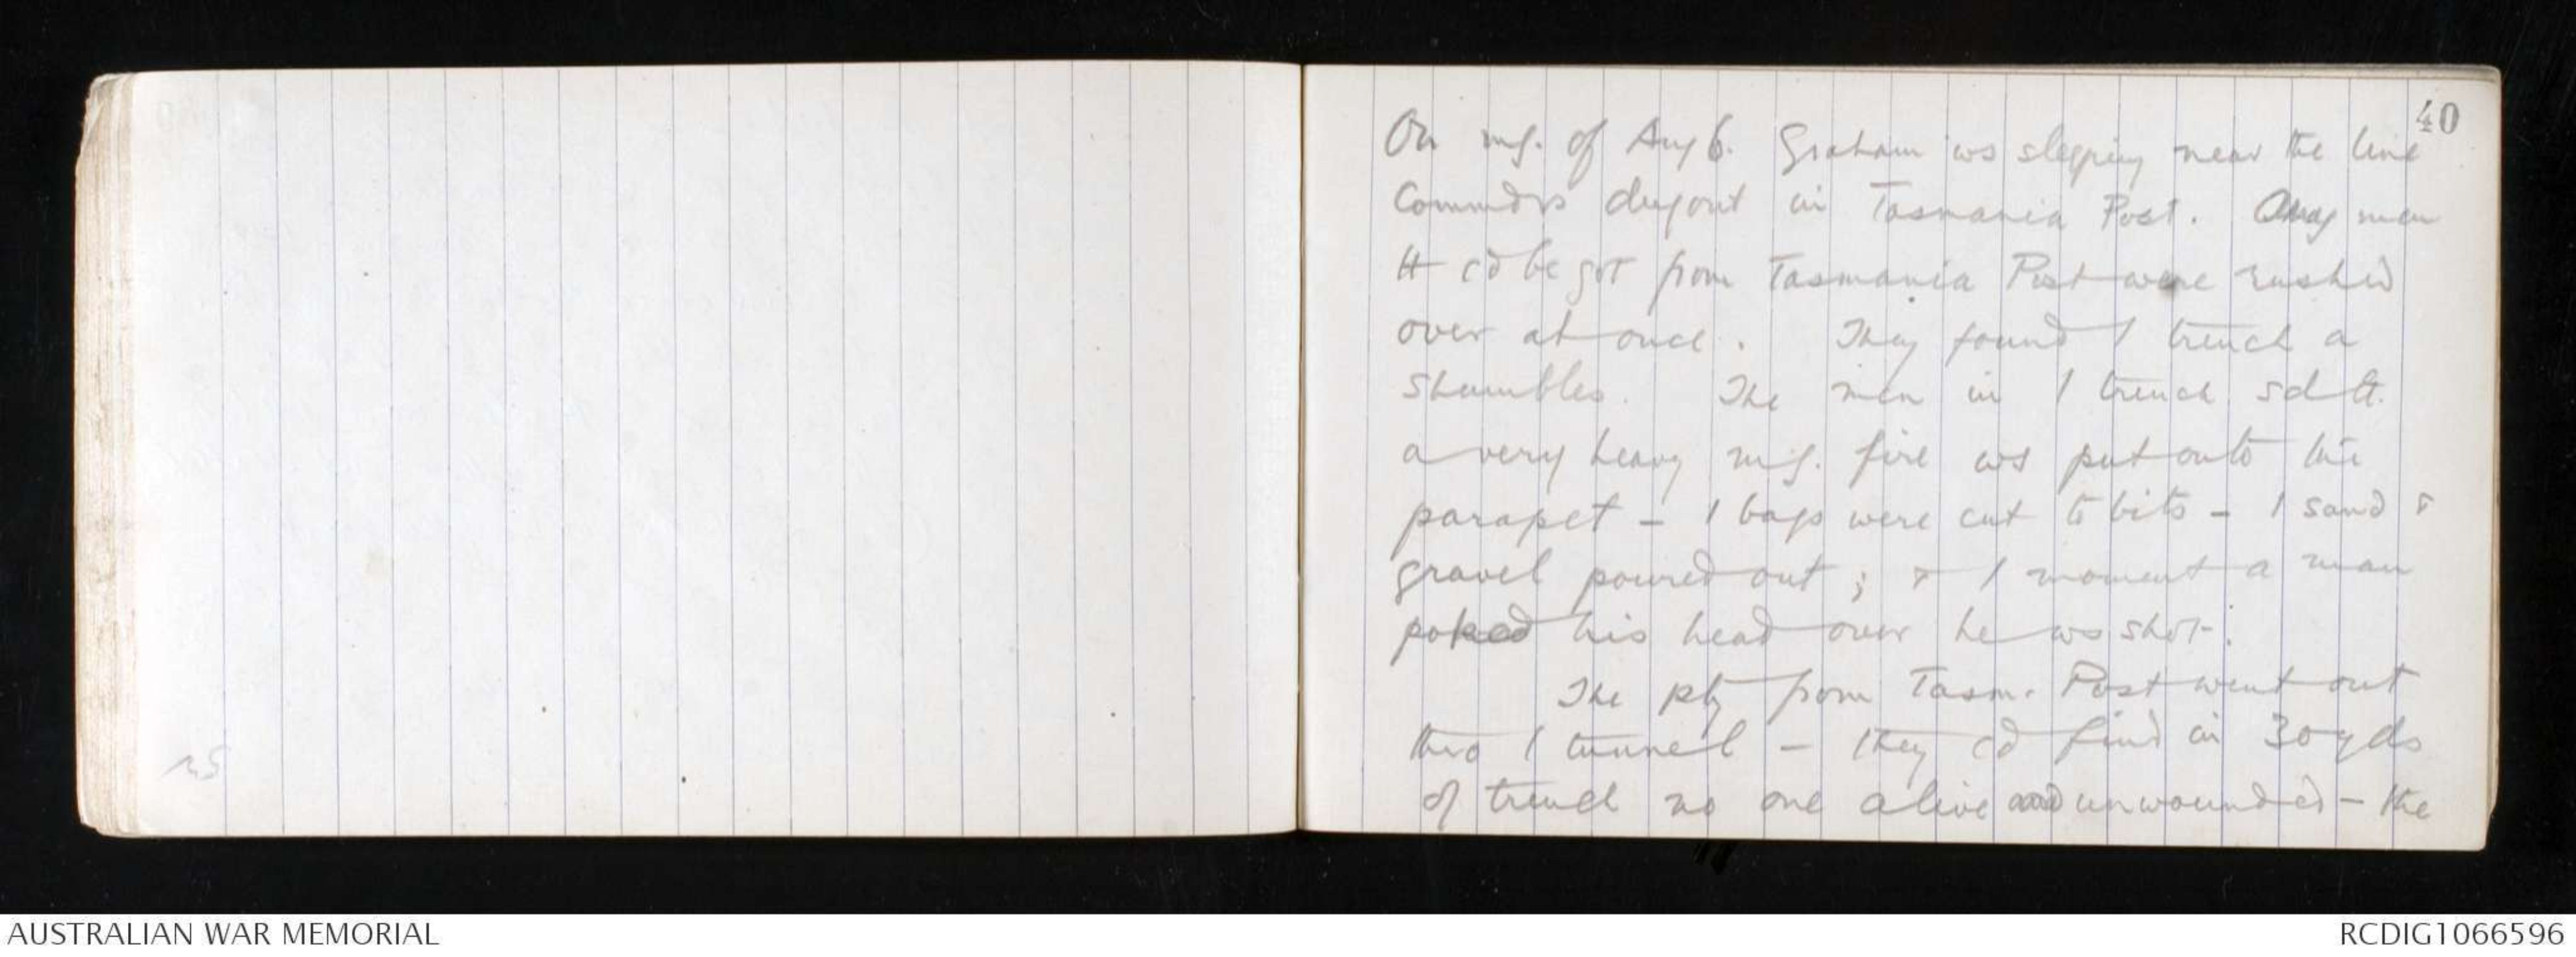 40
On mg. of Aug 6. Graham ws sleeping near the line
Commdrs dugout in Tasmania Post. Any men
tt cd be got from Tasmania Post were rushed
over at once. They found / trench a
shambles. The men in / trench sd tt
a very heavy m.g. fire ws put onto the
parapet - / bags were cut to bits - / sand &
gravel poured out; & / moment a man
poked his head over he ws shot.
The pty from Tasm. Post went out
thro / tunnel - they cd find in 30 yds
of trench no one alive and unwounded - the
AUSTRALIAN WAR MEMORIAL
RCDIG1066596